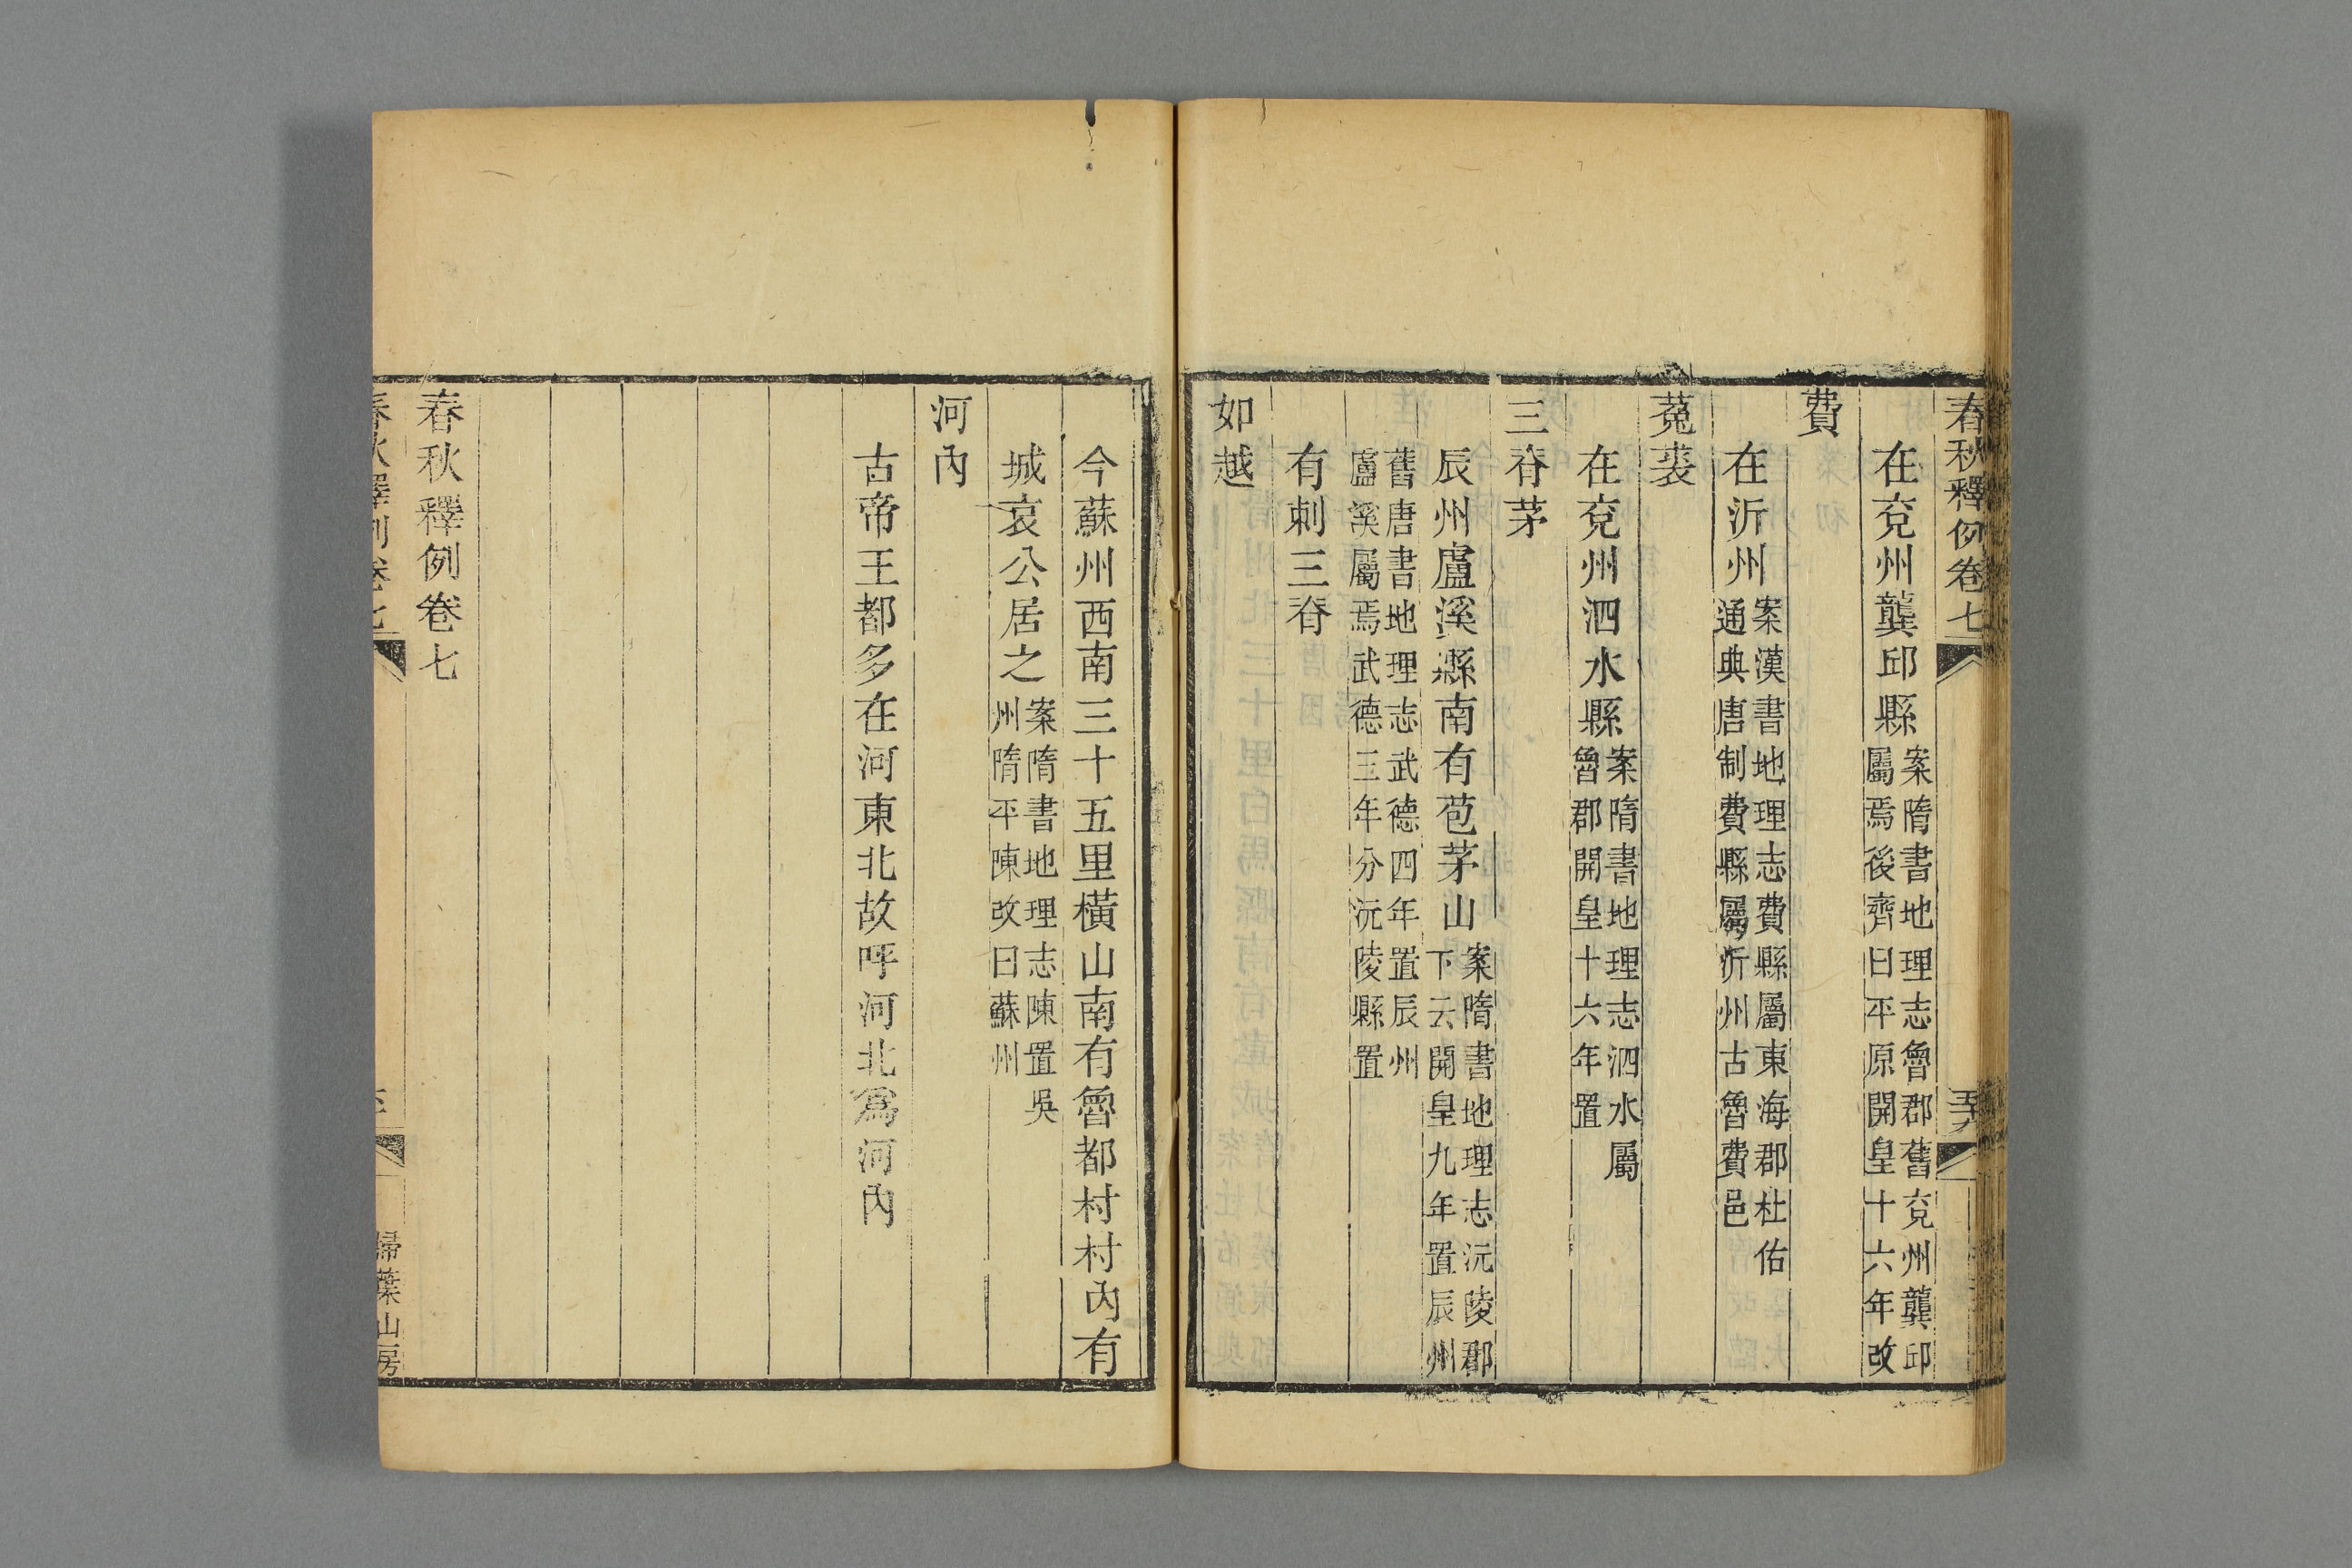 春秋釋例卷七
在兗州龔邱縣案隋書地理志魯郡舊兗州龔邱屬焉後齊曰平原開皇十六年改
費
在沂州案漢書地理志費縣屬東海郡杜佑通典唐制費縣屬沂州古魯費邑
菟裘
在兗州泗水縣案隋書地理志泗水屬魯郡開皇十六年置
三脊茅
辰州盧溪縣南有苞茅山案隋書地理志沅陵郡下云開皇九年置辰州
舊唐書地理志武德四年置辰州盧溪屬焉武德三年分沅陵縣置
有刺三脊
如越
今蘇州西南三十五里橫山南有魯都村村內有
城哀公居之案隋書地理志陳置吳州隋平陳改曰蘇州
河內
古帝王都多在河東北故呼河北爲河內
春秋釋例卷七
春秋釋例卷七
掃葉山房